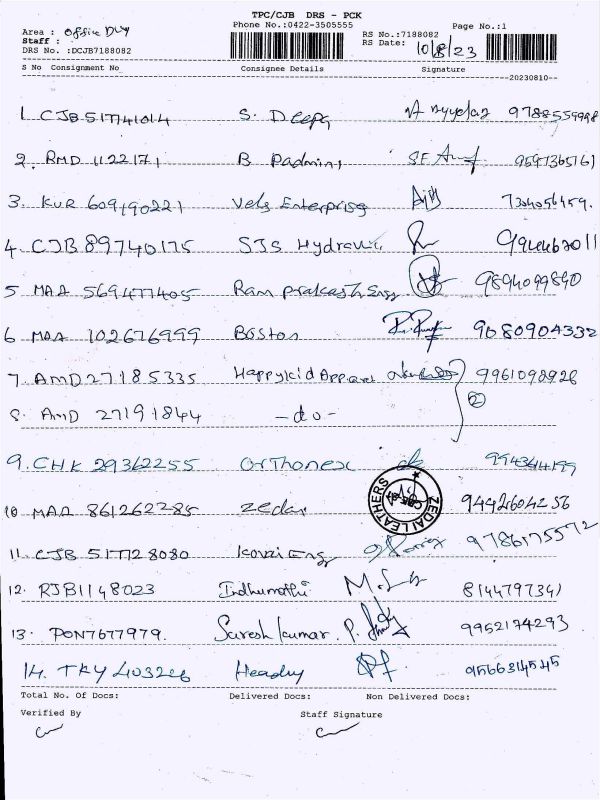 TPC/CJB DRS - PCK
Phone No.:0422-3505555
Page No.:1
Area : Office Dly
Staff : -
DRS No. :DCJB7188082
RS No.:7188082
RS Date: 10/8/23
S No Consignment No Consignee Details Signature
20230810
1. CJB 517741014 S. Deepa 9788559998
2. RMD 1122171 B Padmini 9597365761
3. KUR 609190221 Vels Enterprise 7304056459.
4. CJB 89740175 SJS Hydraulic 9944462011
5 MAA 569477405 Ram prakash Engg 9894099890
6 MAA 102676999 Boston 9080904332
7. AMD 27185335 Happykid Apparel 9961098926
2
8. AMD 27191844 - do -
9. CHK 29362255 Orthonex 994364199
10 MAA 861262285 Zedai 9442604256
ZEDAI LEATHERS
11. CJB 517728080 Kovai Eng 9786175572
12. RJB1148023 Indhumathi 814479734)
13. PON7677979. Suresh kumar. P. 9952174293
14. TKY 403226 Headry 9566314545
Total No. Of Docs: Delivered Docs: Non Delivered Docs:
Verified By Staff Signature